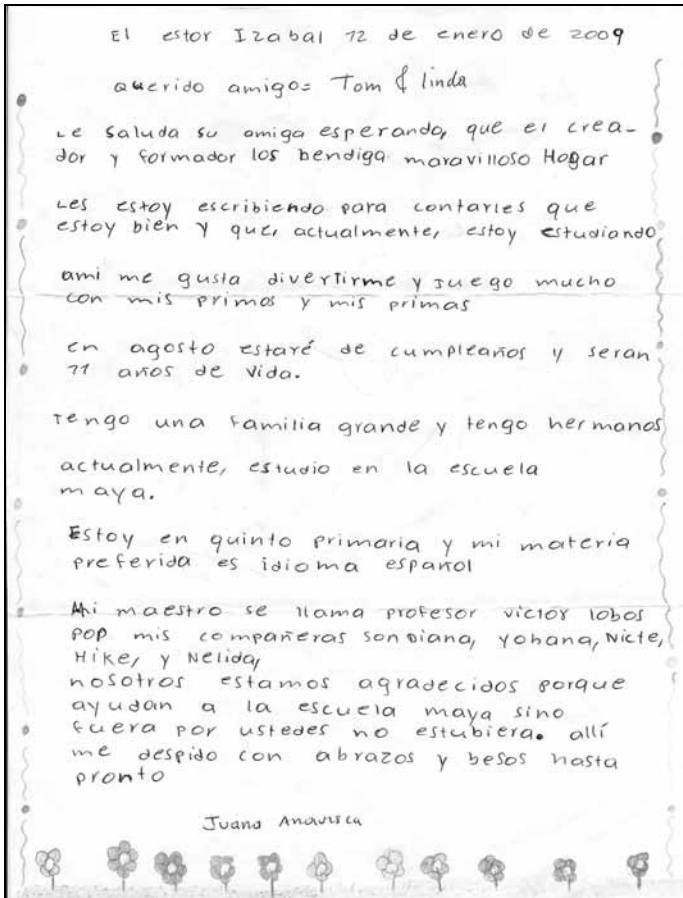 El estor Izabal 12 de enero de 2009
querido amigo= Tom & linda
Le saluda su amiga esperando, que el crea-
dor y formador los bendiga maravilloso Hogar
Les estoy escribiendo para contarles que
estoy bien y que, actualmente, estoy estudiando,
ami me gusta divertirme y juego mucho
con mis primos y mis primas
en agosto estaré de cumpleaños y seran
11 años de vida.
Tengo una familia grande y tengo hermanos
actualmente, estudio en la escuela
maya.
Estoy en quinto primaria y mi materia
preferida es idioma español
Mi maestro se llama profesor victor lobos
POP mis compañeras son Diana, yohana, Nicte,
Hike, y Nelida,
nosotros estamos agradecidos porque
ayudan a la escuela maya sino
fuera por ustedes no estubiera. allí
me despido con abrazos y besos hasta
pronto
Juana